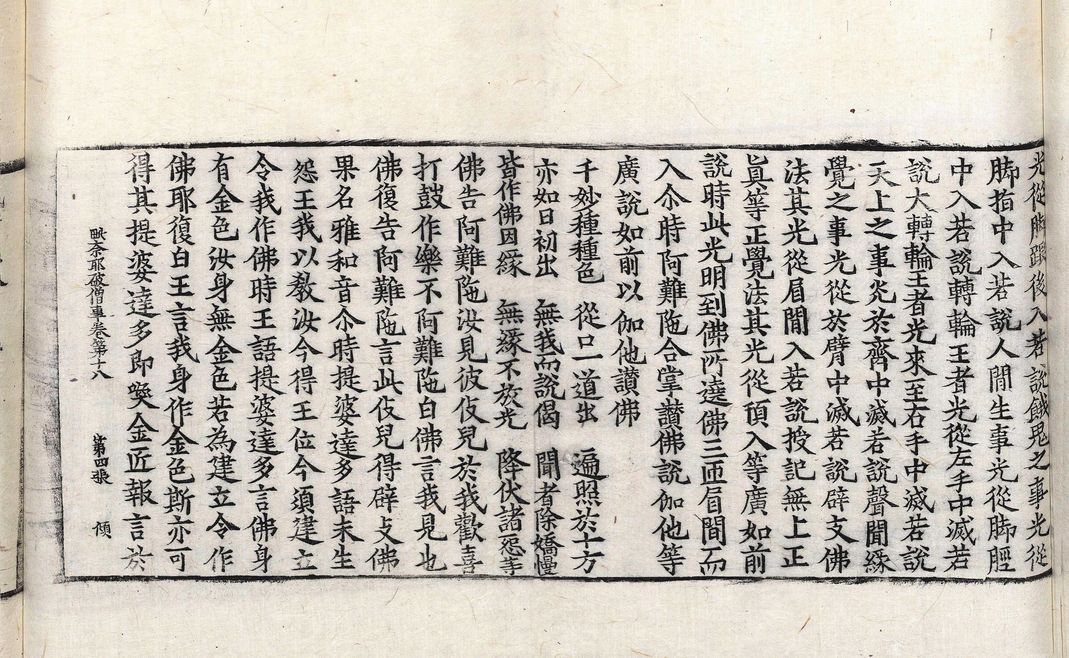 光從脚跟後入若說餓鬼之事光從
脚指中入若說人間生事光從脚脛
中入若說轉輪王者光從左手中滅若
說大轉輪王者光來至右手中滅若說
天上之事光於齊中滅若說聲聞緣
覺之事光從於臂中滅若說辟支佛
法其光從眉間入若說授記無上正
眞等正覺法其光從頂入等廣如前
說時此光明到佛所遶佛三匝眉間而
入尒時阿難陁合掌讃佛說伽他等
廣說如前以伽他讃佛
千妙種種色　從口一道出　遍照於十方
亦如日初出　無我而說偈　聞者除憍慢
皆作佛因緣　無緣不放光　降伏諸惡等
佛告阿難陁汝見彼伎兒於我歡喜
打鼓作樂不阿難陁白佛言我見也
佛復告阿難陁言此伎兒得辟支佛
果名雅和音尒時提婆達多語未生
怨王我以教汝今得王位今須建立
令我作佛時王語提婆達多言佛身
有金色汝身無金色若為建立令作
佛耶復白王言我身作金色斯亦可
得其提婆達多即喚金匠報言於
毗奈耶破僧事卷第十八　第四張　傾